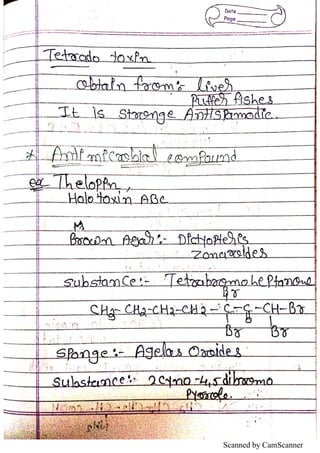 Date
Page
Tetrado toxin
obtain from:- liver
Puffer fishes
It is stronge Antispamodic.
* Antimicrobial compound
eg Thelopin,
Holotoxin ABC
Brown Agar:- Dictyopteris
Zonaroides
substance:- Tetrabromoheptanone
Br
CH3-CH2-CH2-CH2-C-C-CH-Br
Br Br
Sponge:- Agelas Oroides
substance:- 2cyno-4,5dibromo
Pyrrole.
Scanned by CamScanner